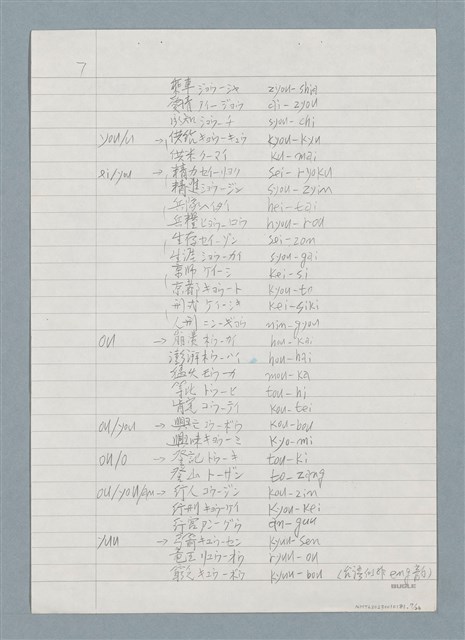 7
乗車 ジョウーシャ zyou-shia
愛情 アイージョウ ai-zyou
承知 ショウーチ syou-chi
you/u → 供給 キョウーキュウ kyou-kyu
供米 クーマイ ku-mai
ei/you → 精力 セイーリョク sei-ryoku
精進 ショウージン syou-zyin
兵隊 ヘイータイ hei-tai
兵糧 ヒョウーロウ hyou-rou
生存 セイーゾン sei-zon
生涯 ショウーガイ syou-gai
京師 ケイーシ kei-si
京都 キョウート kyou-to
刑式 ケイーシキ kei-siki
人形 ニンーギョウ nin-gyou
ou → 崩壊 ホウーカイ hou-kai
澎湃 ホウーハイ hou-hai
猛火 モウーカ mou-ka
等比 トウーヒ tou-hi
肯定 コウーテイ kou-tei
ou/you → 興亡 コウーボウ kou-bou
興味 キョウーミ kyo-mi
ou/o → 登記 トウーキ tou-ki
登山 トーザン to-zang
ou/you/an → 行人 コウージン kou-zin
行刑 ギョウーケイ kyou-kei
行宮 アンーグウ an-guu
yuu → 弓箭 キュウーセン kyuu-sen
竜王 リュウーオウ ryuu-ou
窮乏 キュウーボウ kyuu-bou (台湾 eng 韵)